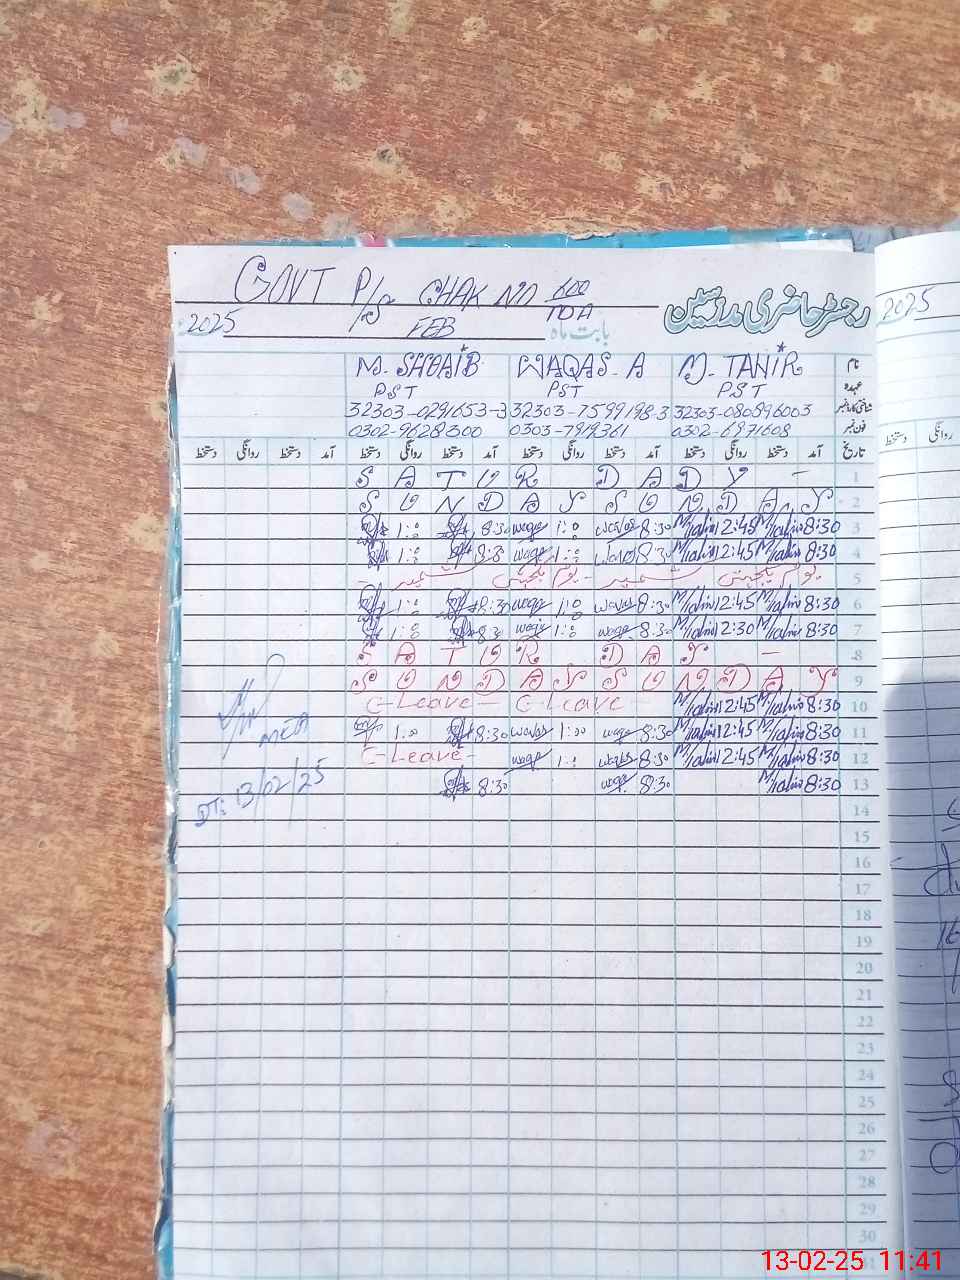 GOVT P/S CHAK NO 600/TDA
رجسٹر حاضری مدرسین
2025 FEB بابت ماہ
2025
M. SHOAIB WAQAS-A M. TANIR نام
PST PST PST عہدہ
32303-0291653-3 32303-7599198-3 32303-080896003 شناختی کارڈ نمبر
0302-9628300 0303-7919361 0302-6971608 فون نمبر
دستخط روانگی دستخط آمد دستخط روانگی دستخط آمد دستخط روانگی دستخط آمد دستخط روانگی دستخط آمد تاریخ
دستخط روانگی
S A T U R D A D Y - 1
S U N D A Y S U N D A Y 2
1:0 8:30 waqs 1:0 waqas 8:30 M/Tahir 12:45 M/Tahir 8:30 3
1:0 8:30 waqs 1:0 waqas 8:30 M/Tahir 12:45 M/Tahir 8:30 4
یوم یکجہتی کشمیر - یوم یکجہتی کشمیر - 5
1:0 8:30 waqs 1:0 waqas 8:30 M/Tahir 12:45 M/Tahir 8:30 6
1:0 8:30 waqs 1:0 waqs 8:30 M/Tahir 12:30 M/Tahir 8:30 7
S A T U R D A Y - 8
S U N D A Y S U N D A Y 9
C-Leave - C-Leave - M/Tahir 12:45 M/Tahir 8:30 10
1:00 8:30 waqas 1:00 waqs 8:30 M/Tahir 12:45 M/Tahir 8:30 11
C-Leave - waqs 1:0 waqas 8:30 M/Tahir 12:45 M/Tahir 8:30 12
8:30 waqs 8:30 M/Tahir 8:30 13
MEA
DT: 13/02/25
14
15
16
17
18
19
20
21
22
23
24
25
26
27
28
29
30
31
13-02-25 11:41